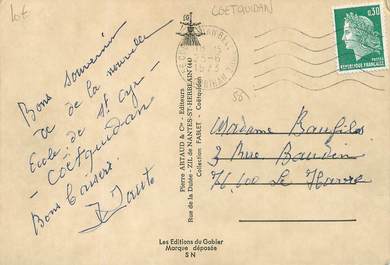 10€
COETQUIDAN
0,30
Bons souvenirs
de la nouvelle
Ecole de St Cyr
- Coëtquidan -
Bons baisers.
Pierre ARTAUD & Cie - Editeurs
Rue de la Dutée - ZIL de NANTES-ST-HERBLAIN (44)
Collection FABLET - Coëtquidan
Madame
3 Rue Baudin
76,600 Le Havre
Les Editions du Gabier
Marque déposée
S N